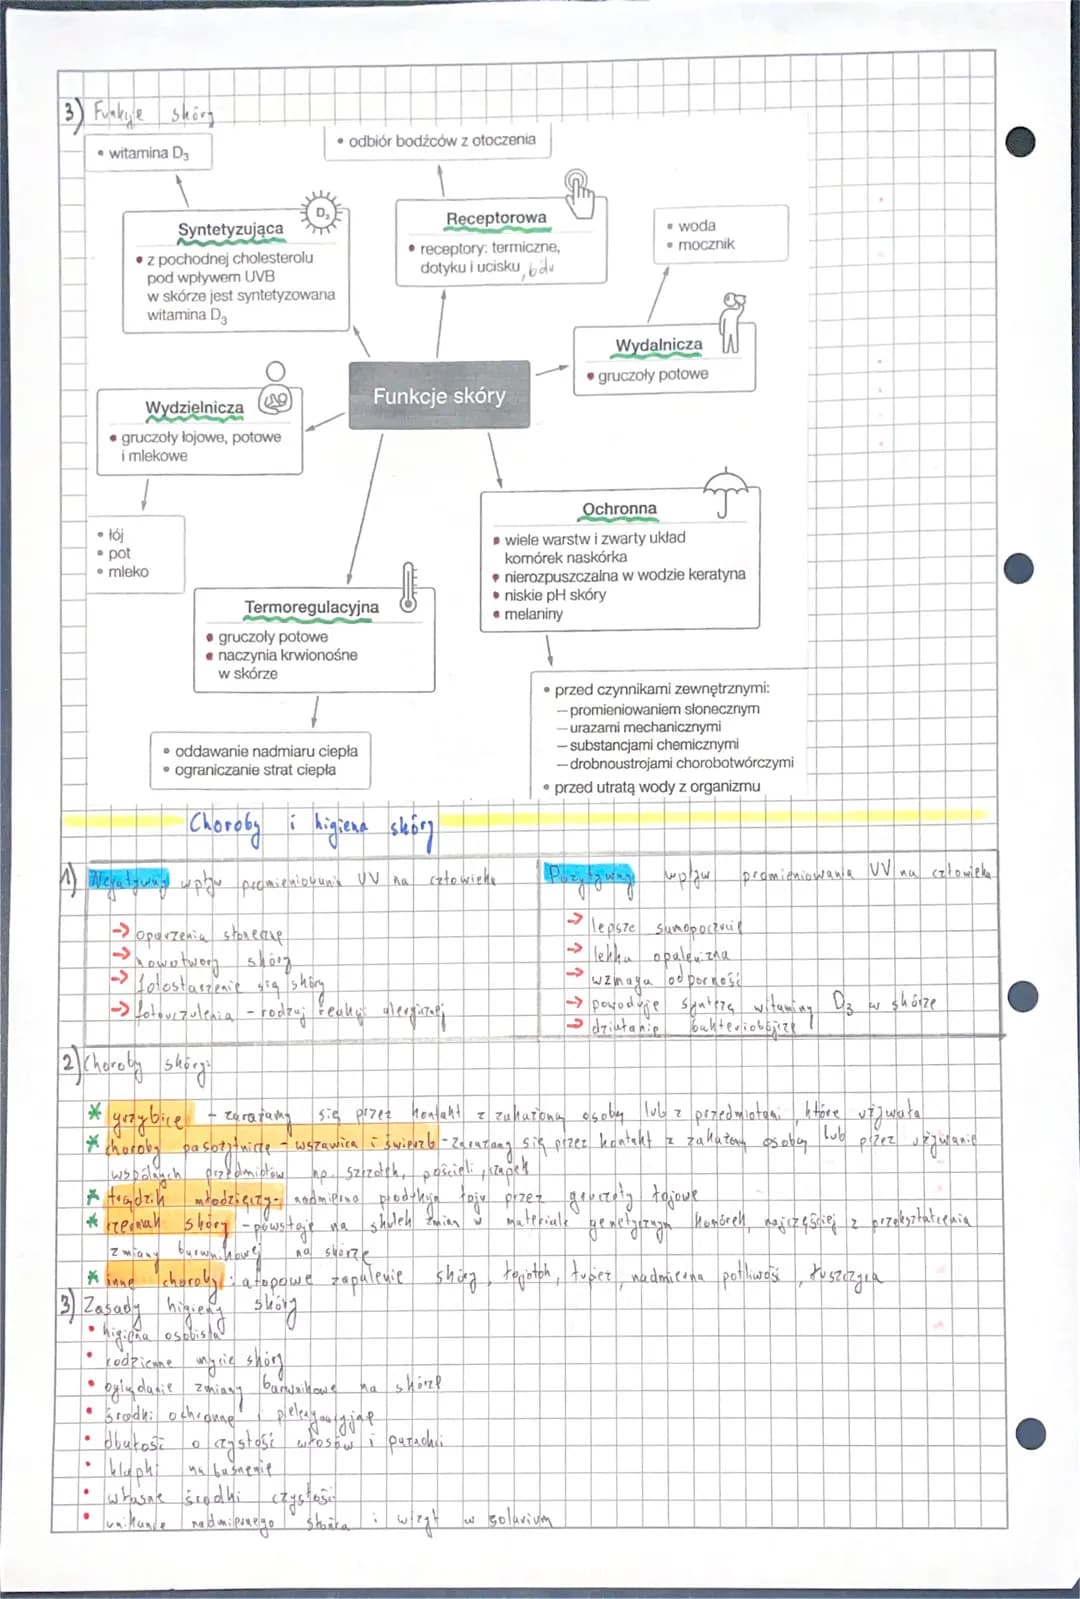 3) Funkcje skóry
• witamina D3
• odbiór bodźców z otoczenia
Syntetyzująca
D3
• z pochodnej cholesterolu
pod wpływem UVB
w skórze jest syntetyzowana
witamina D3
Receptorowa
• receptory: termiczne,
dotyku i ucisku, bólu
• woda
• mocznik
Wydalnicza
• gruczoły potowe
Funkcje skóry
Wydzielnicza
• gruczoły łojowe, potowe
i mlekowe
• łój
• pot
• mleko
Ochronna
• wiele warstw i zwarty układ
komórek naskórka
• nierozpuszczalna w wodzie keratyna
• niskie pH skóry
• melaniny
Termoregulacyjna
• gruczoły potowe
• naczynia krwionośne
w skórze
• oddawanie nadmiaru ciepła
• ograniczanie strat ciepła
• przed czynnikami zewnętrznymi:
— promieniowaniem słonecznym
— urazami mechanicznymi
— substancjami chemicznymi
— drobnoustrojami chorobotwórczymi
• przed utratą wody z organizmu
Choroby i higiena skóry
1) Negatywny wpływ promieniowania UV na człowieka
→ oparzenia słoneczne
→ nowotwory skóry
→ fotostarzenie się skóry
→ fotouczulenia - rodzaj reakcji alergicznej
Pozytywny wpływ promieniowania UV na człowieka
→ lepsze samopoczucie
→ lekka opalenizna
→ wzmaga odporność
→ powoduje syntezę witaminy D3 w skórze
→ działanie bakteriobójcze
2) Choroby skóry:
* grzybice - zarażamy się przez kontakt z zakażoną osobą lub z przedmiotami, które używała
* choroby pasożytnicze - wszawica i świerzb - zarażamy się przez kontakt z zakażoną osobą lub przez używanie
wspólnych przedmiotów np. szczotek, pościeli, czapek
* trądzik młodzieńczy - nadmierna produkcja łoju przez gruczoły łojowe
* czerniak skóry - powstaje na skutek zmian w materiale genetycznym komórek, najczęściej z przekształcenia
zmiany barwnikowej na skórze
* inne choroby: atopowe zapalenie skóry, łojotok, łupież, nadmierna potliwość, łuszczyca
3) Zasady higieny skóry
• higiena osobista
• codzienne mycie skóry
• oglądanie zmiany barwnikowe na skórze
• środki ochronne i pielęgnacyjne
• dbałość o czystość włosów i paznokci
• klapki na basenie
• własne środki czystości
• unikanie nadmiernego słońca i wizyt w solarium